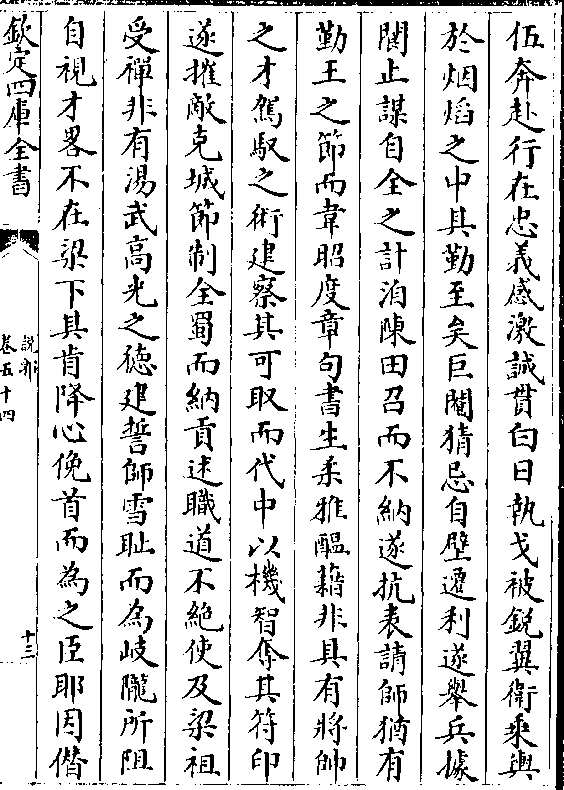 伍奔赴行在忠義感激誠貫白日執戈被銳翼衛乘輿
於烟熖之中具勤至矣巨閹猜忌自壁遷利遂舉兵據
閬止謀自全之計洎陳田召而不納遂抗表請師猶有
勤王之節而韋昭度章句書生柔雅醞藉非具有將帥
之才駕馭之術建察其可取而代中以機智奪其符印
遂摧敵克城節制全蜀而納貢述職道不絶使及梁祖
受禪非有湯武髙光之德建誓師雪耻而為岐隴所阻
自視才畧不在梁下其肯降心俛首而為之臣耶因僭
欽定四庫全書
說郛
卷五十四
十三